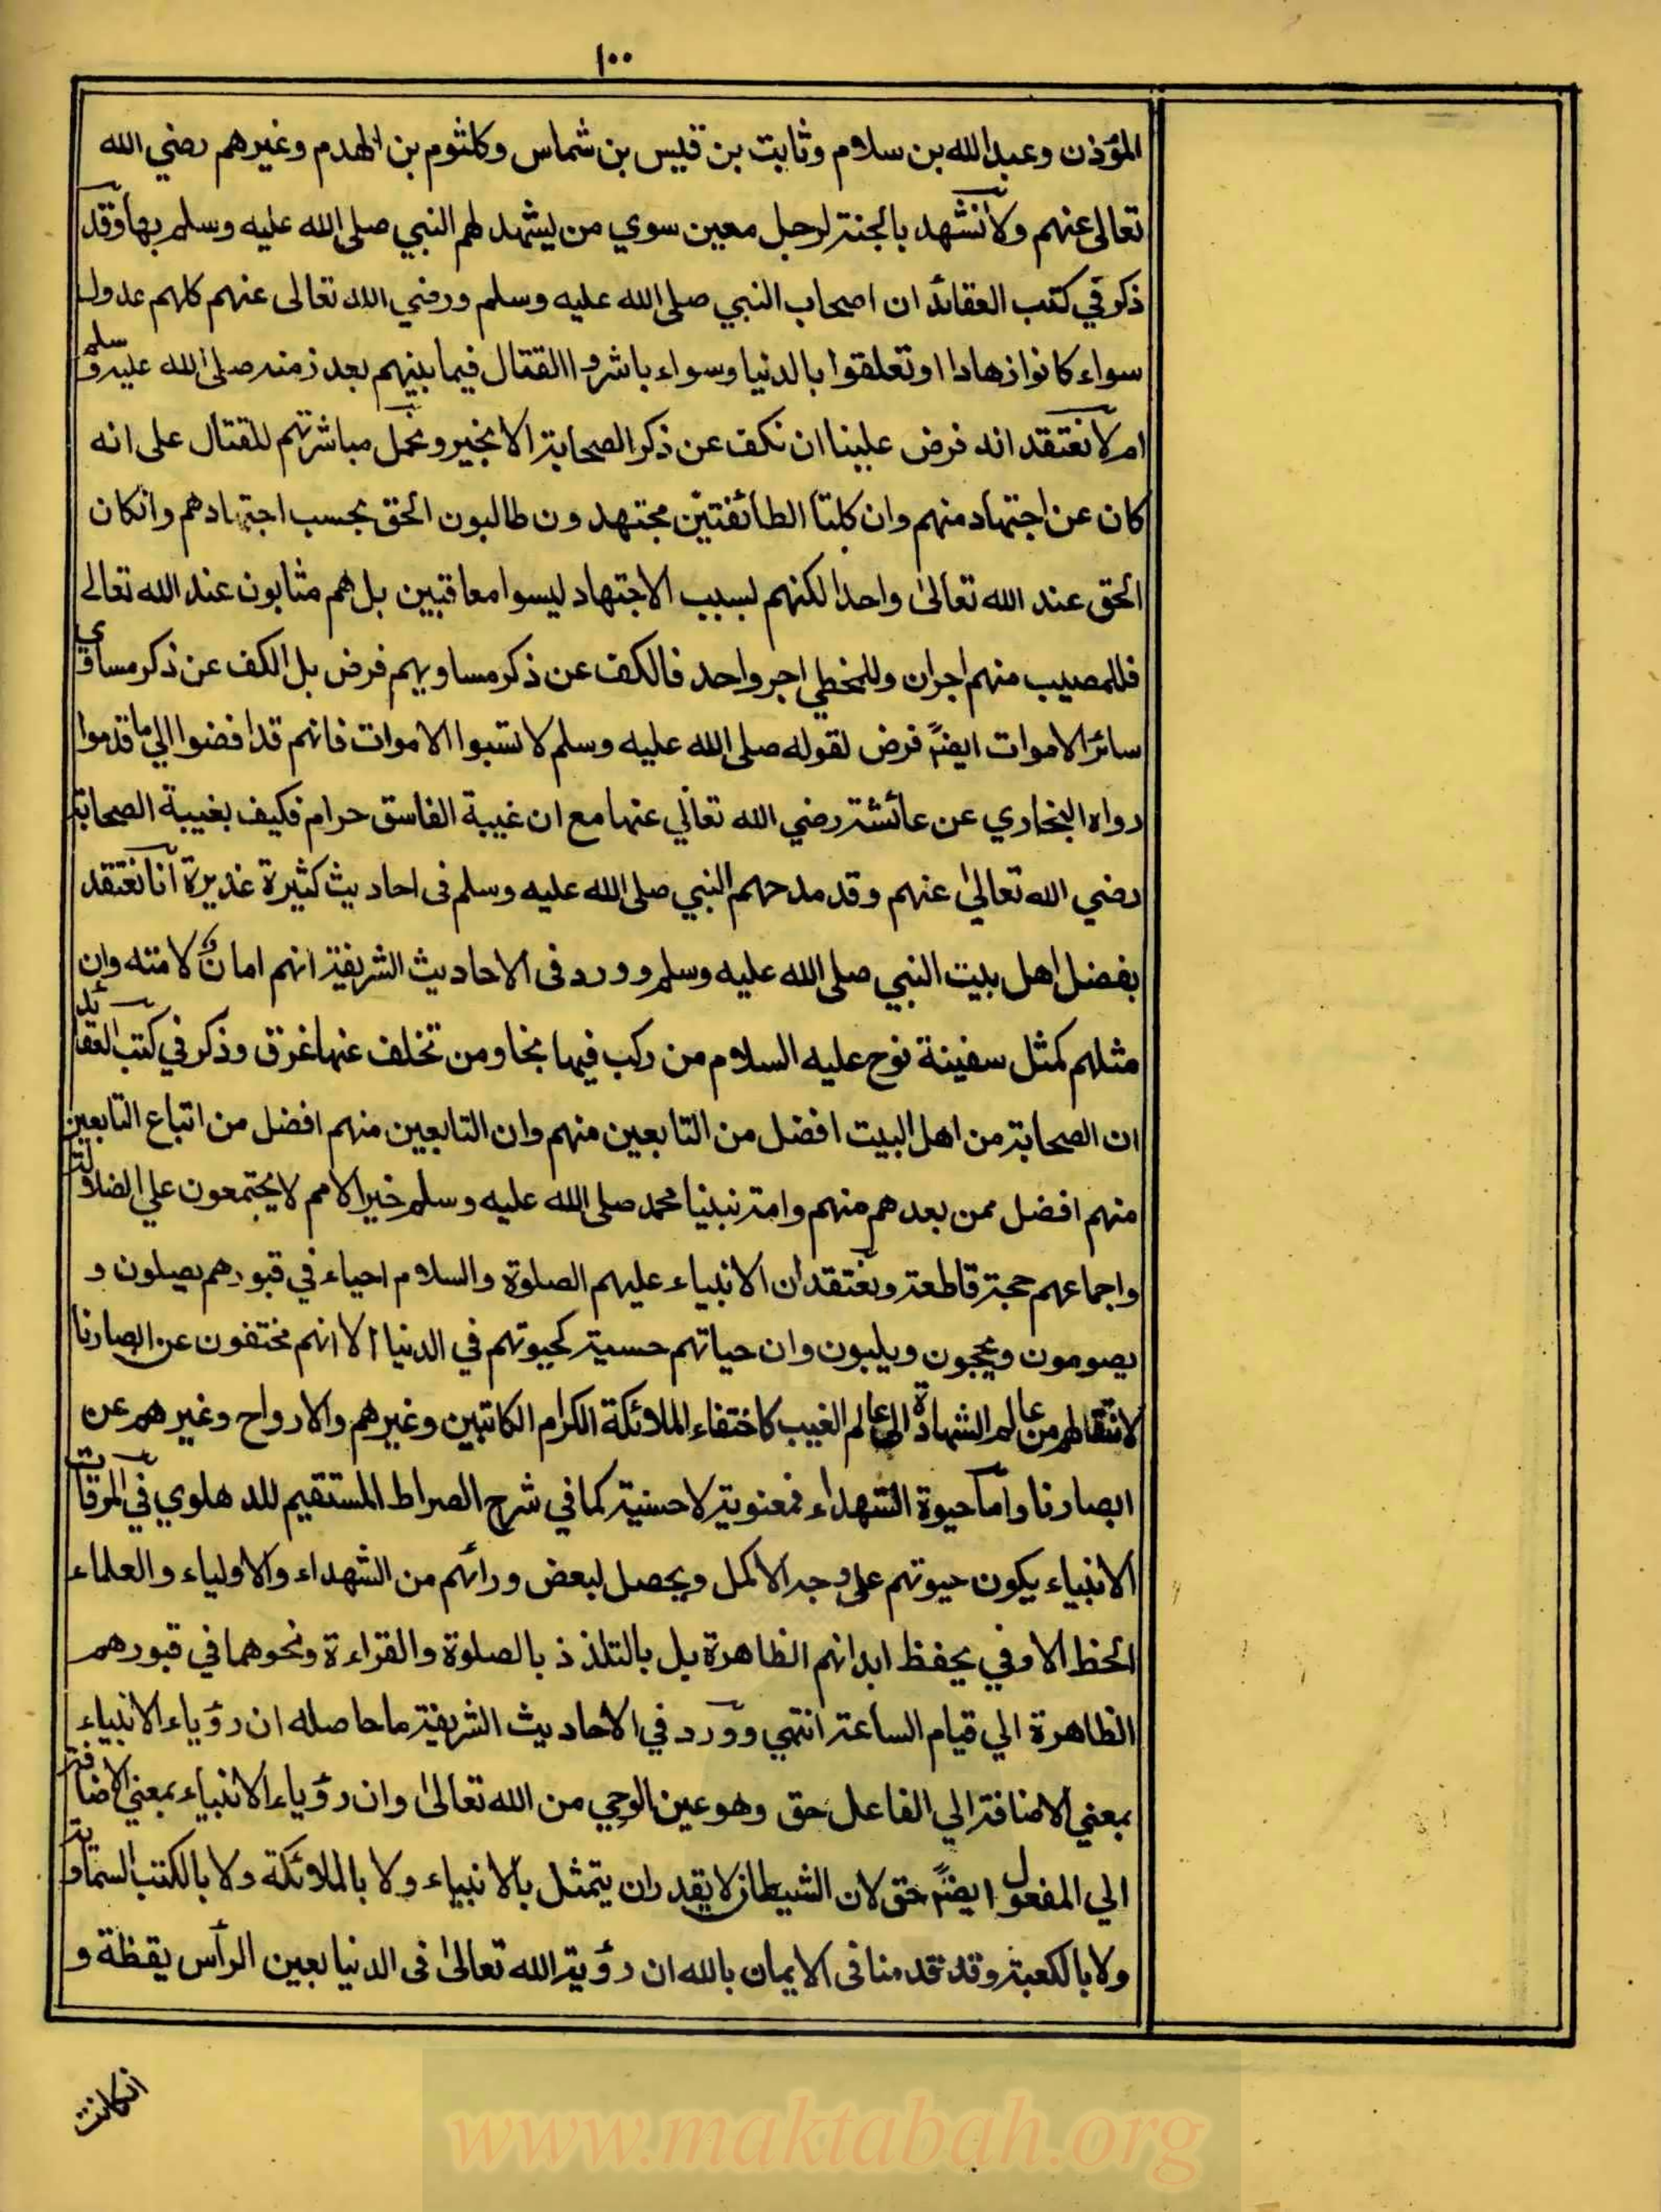 ١٠٠
المؤذن وعبدالله بن سلام وثابت بن قيس بن شماس وكلثوم بن الهدم وغيرهم رضي الله
تعالى عنهم ولانشهد بالجنة لرجل معين سوي من يشهد لهم النبي صلى الله عليه وسلم بها وقد
ذكر في كتب العقائد ان اصحاب النبي صلى الله عليه وسلم ورضي الله تعالى عنهم كلهم عدول
سواء كانوا زهادا او تعلقوا بالدنيا وسواء باشروا القتال فيما بينهم بعد زمنه صلى الله عليه وسلم
ام لا نعتقد انه فرض علينا ان نكف عن ذكر الصحابة الا بخير ونحمل مباشرتهم للقتال على انه
كان عن اجتهاد منهم وان كلتا الطائفتين مجتهدون طالبون الحق بحسب اجتهادهم وانكان
الحق عند الله تعالى واحدا لكنهم بسبب الاجتهاد ليسوا معاقبين بل هم مثابون عند الله تعالى
فللمصيب منهم اجران وللمخطي اجر واحد فالكف عن ذكر مساويهم فرض بل الكف عن ذكر مساوي
سائر الاموات ايضا فرض لقوله صلى الله عليه وسلم لا تسبوا الاموات فانهم قد افضوا الي ما قدموا
رواه البخاري عن عائشة رضي الله تعالي عنها مع ان غيبة الفاسق حرام فكيف بغيبة الصحابة
رضي الله تعالى عنهم وقد مدحهم النبي صلى الله عليه وسلم فى احاديث كثيرة غذيرة انا نعتقد
بفضل اهل بيت النبي صلى الله عليه وسلم وورد فى الاحاديث الشريفة انهم امان لامته وان
مثلهم كمثل سفينة نوح عليه السلام من ركب فيها نجا ومن تخلف عنها غرق وذكر في كتب العقائد
ان الصحابة من اهل البيت افضل من التابعين منهم وان التابعين منهم افضل من اتباع التابعين
منهم افضل ممن بعدهم منهم وامة نبينا محمد صلى الله عليه وسلم خير الامم لا يجتمعون علي الضلالة
واجماعهم حجة قاطعة ونعتقد ان الانبياء عليهم الصلوة والسلام احياء في قبورهم يصلون و
يصومون ويحجون ويلبون وان حياتهم حسية كحيوتهم في الدنيا الا انهم مختفون عن ابصارنا
لانتقالهم من عالم الشهادة الى عالم الغيب كاختفاء الملائكة الكرام الكاتبين وغيرهم والارواح وغيرهم عن
ابصارنا واما حيوة الشهداء فمعنوية لا حسية كما في شرح الصراط المستقيم للدهلوي في المرقات
الانبياء يكون حيوتهم على وجه الاكمل ويحصل لبعض ورائهم من الشهداء والاولياء والعلماء
الحظ الاوفي بحفظ ابدانهم الظاهرة بل بالتلذذ بالصلوة والقراءة ونحوهما في قبورهم
الظاهرة الي قيام الساعة انتهي وورد في الاحاديث الشريفة ما حاصله ان رؤياء الانبياء
بمعني الاضافة الي الفاعل حق وهو عين الوحي من الله تعالى وان رؤياء الانبياء بمعني الاضافة
الي المفعول ايضا حق لان الشيطان لا يقدر ان يتمثل بالانبياء ولا بالملائكة ولا بالكتب السماوية
ولا بالكعبة وقد قدمنا فى الايمان بالله ان رؤية الله تعالى فى الدنيا بعين الرأس يقظة و
انكانت
www.maktabah.org